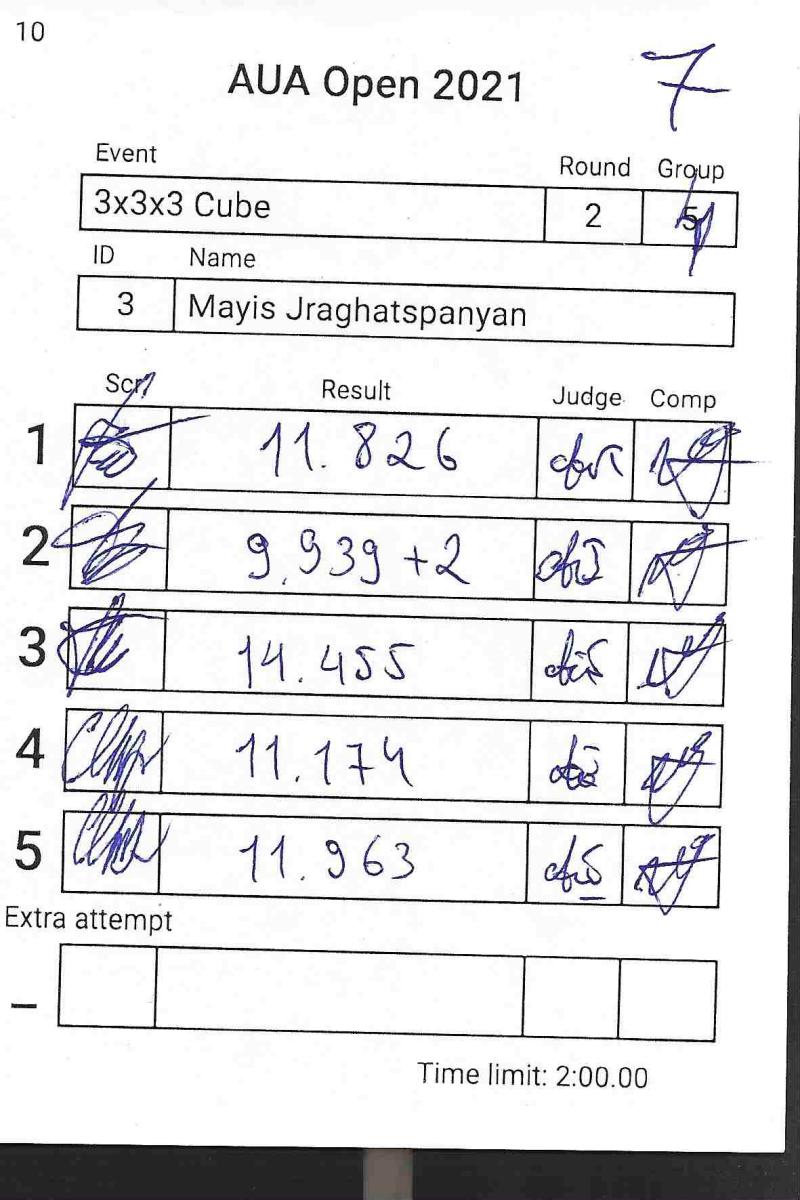 10
AUA Open 2021
7
Event Round Group
3x3x3 Cube 2 5
ID Name
3 Mayis Jraghatspanyan
Scr Result Judge Comp
1 11.826
2 9.939 +2
3 14.455
4 11.174
5 11.963
Extra attempt
–
Time limit: 2:00.00